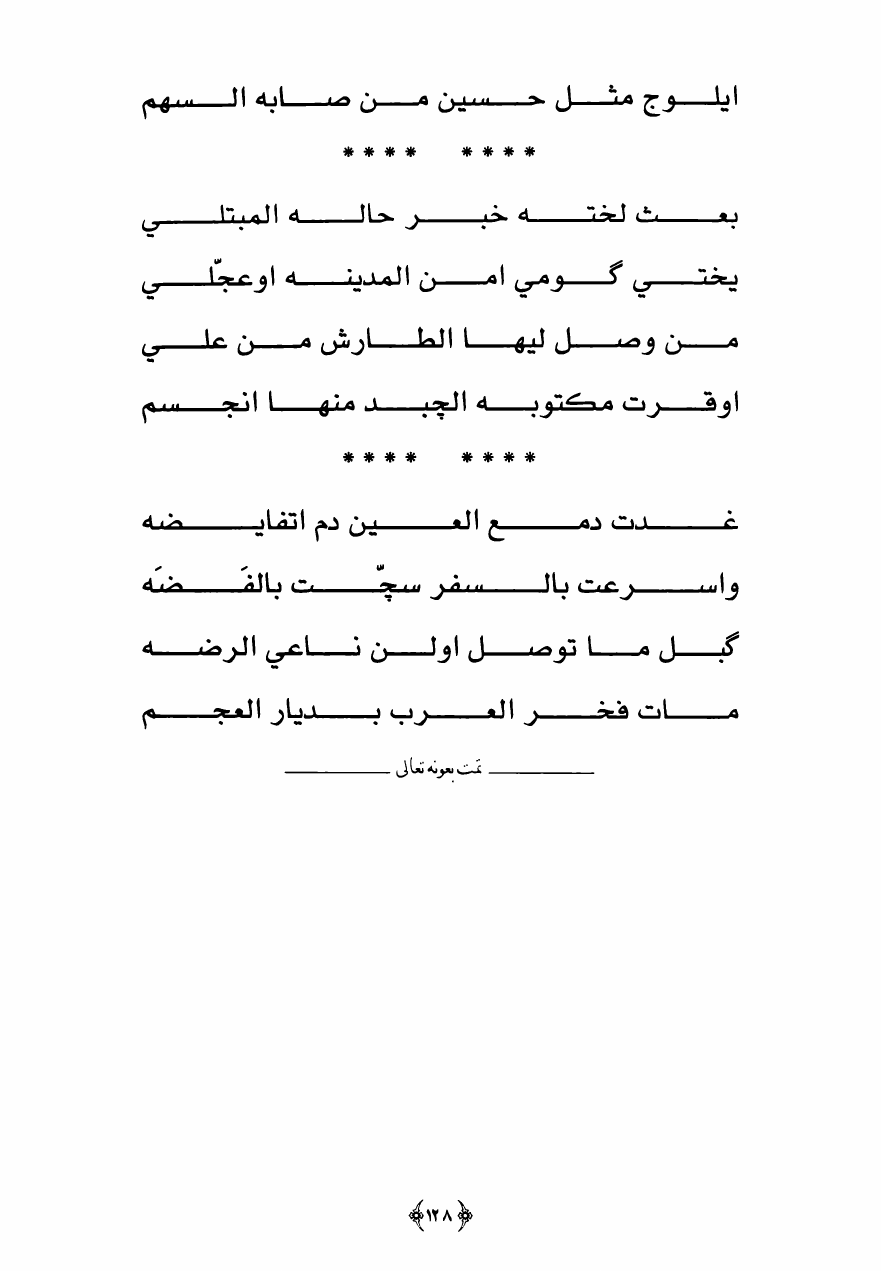 ايلوج مثل حسين من صابه السهم
**** ****
بعث لخته خبر حاله المبتلي
يختي گومي امن المدينه اوعجّلي
من وصل ليها الطارش من علي
اوقرت مكتوبه الچبد منها انجسم
**** ****
غدت دمع العين دم اتفايضه
واسرعت بالسفر سچّت بالفَضَه
گبل ما توصل اولن ناعي الرضه
مات فخر العرب بديار العجم
تمّت بعونه تعالى
﴿١٢٨﴾